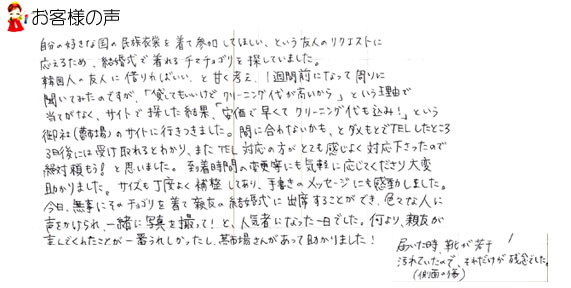 お客様の声
自分の好きな国の民族衣装を着て参加してほしい、という友人のリクエストに
応えるため、結婚式で着れるチマチョゴリを探していました。
韓国人の友人に借りればいい、と甘く考え、1週間前になって周りに
聞いてみたのですが、「貸してもいいけどクリーニング代が高いから」という理由で
当てがなく、サイトで探した結果、「安価で早くてクリーニング代も込み!」という
御社()のサイトに行きつきました。間に合わないかも、とダメもとでTELしたところ
3日後には受け取れるとわかり、またTEL対応の方がとても感じよく対応下さったので
絶対頼もう!と思いました。到着時間の変更等にも気軽に応じてくださり大変
助かりました。サイズも丁度よく補整してあり、手書きのメッセージにも感動しました。
今日、無事にそのチョゴリを着て親友の結婚式に出席することができ、色々な人に
声をかけられ、一緒に写真を撮って!と、人気者になった一日でした。何より、親友が
喜んでくれたことが一番うれしかったし、市場さんがあって助かりました!
届いた時、靴が若干
汚れていたので、それだけが残念でした。
(側面の傷)